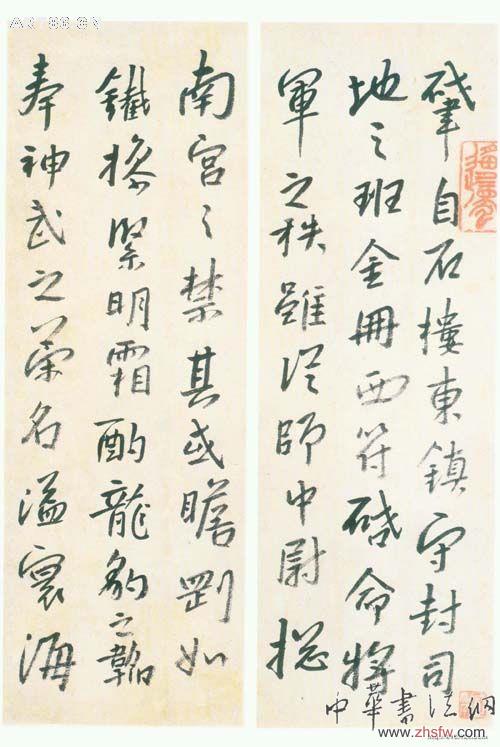 肇自石楼東鎮守封司
地之班金冊西符啓命将
軍之秩雖從師中尉揔
南宫之禁其或瞻剛如
鐵操緊明霜酌龍豹之韜
奉神武之榮名溢寰海
中華書法網
www.zhsfw.com